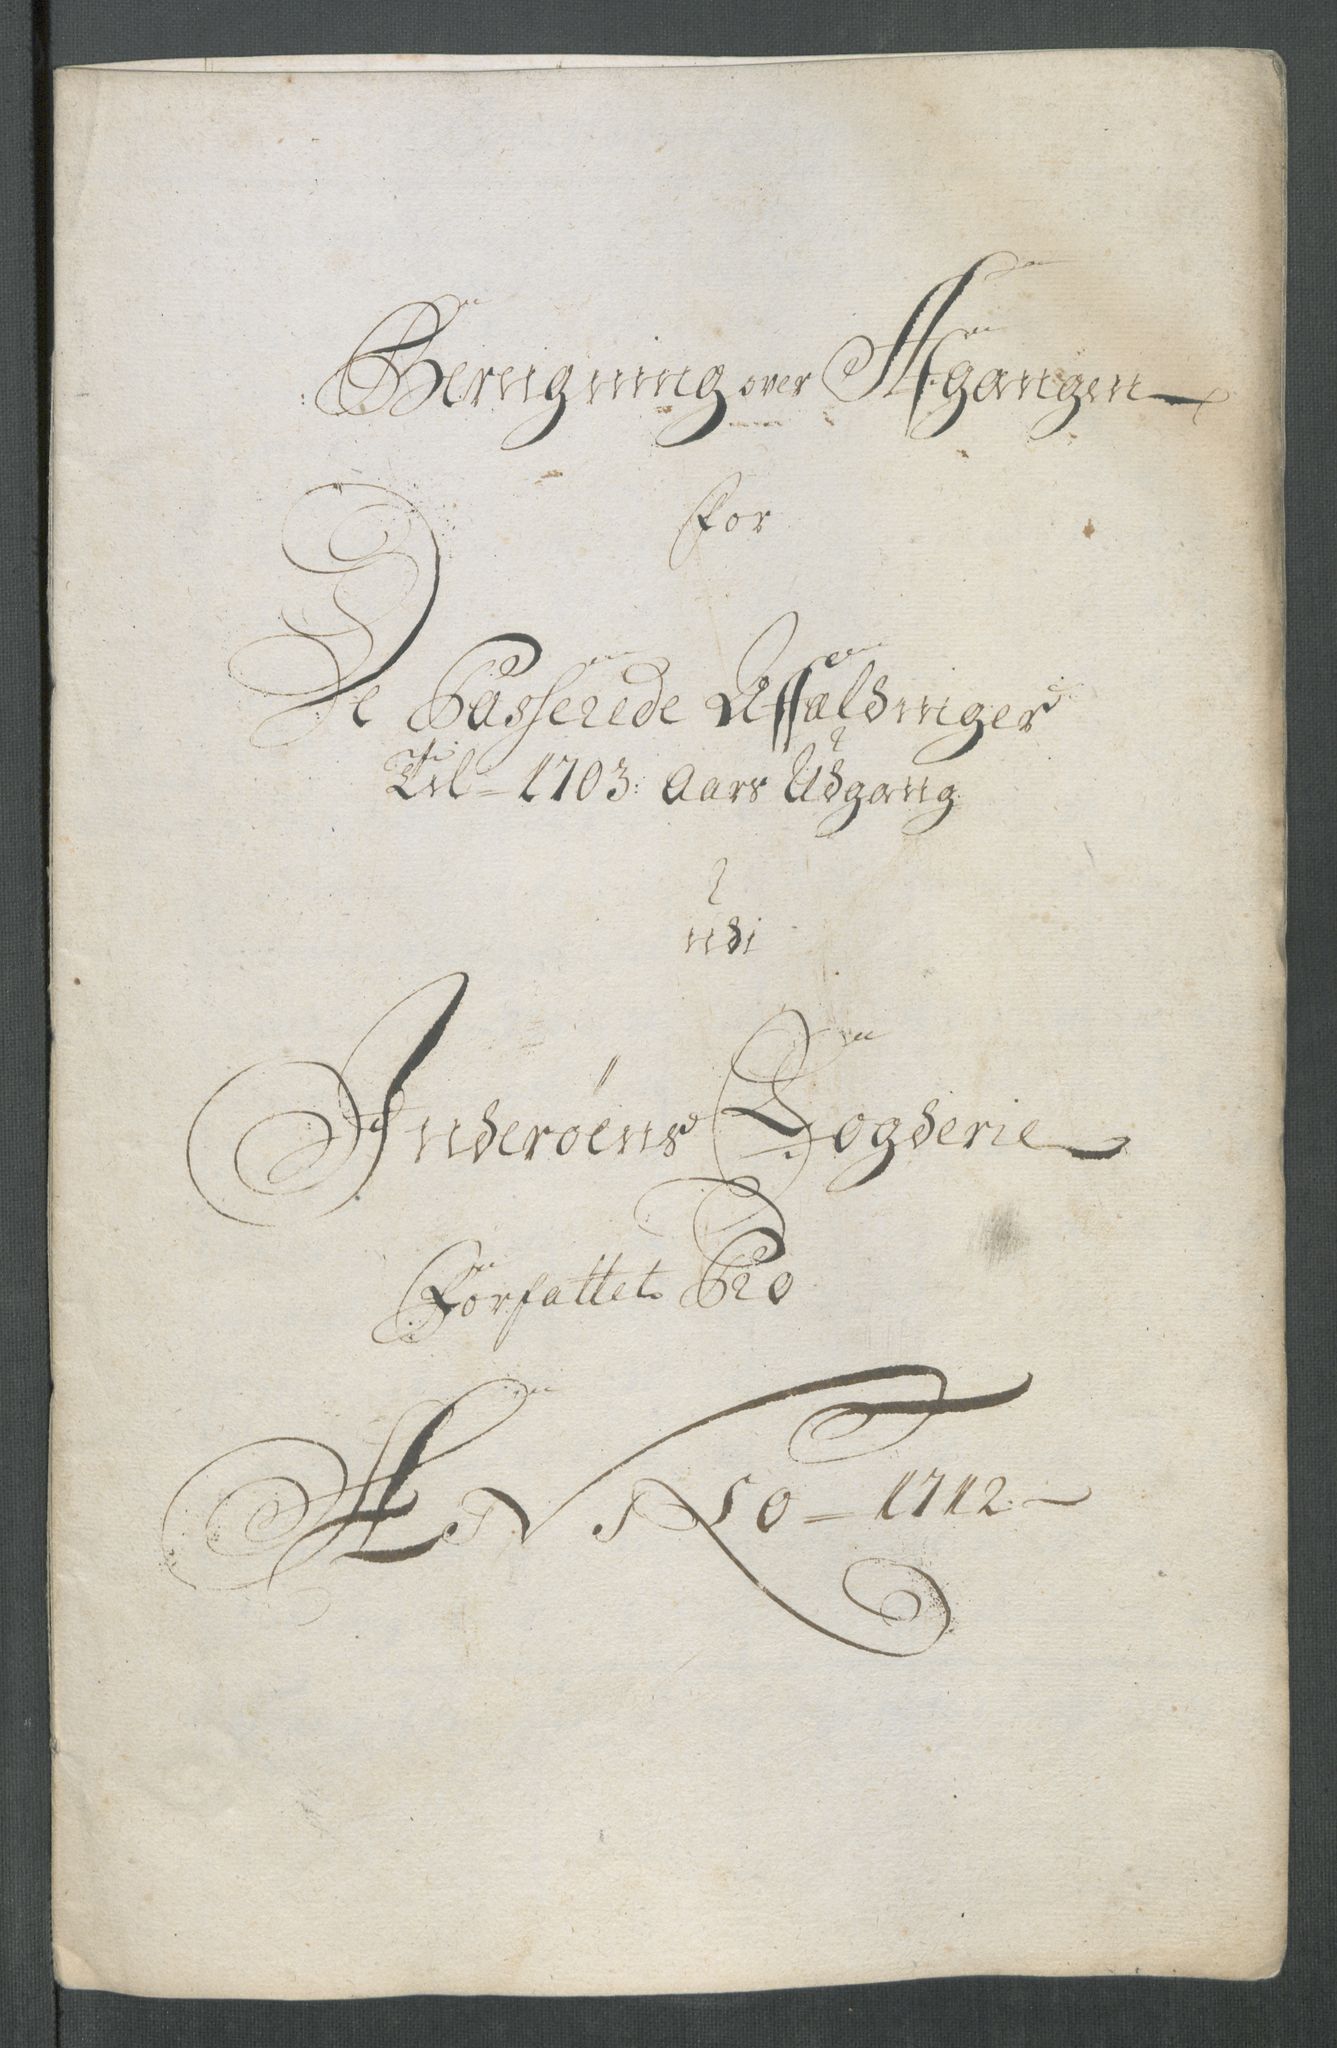 Beregning over Afgangen
for
De Passerede Affældinger
Til 1703: Aars Udgang
udi
Inderöens Fogderie
Forfattet Pro
ANNO 1712